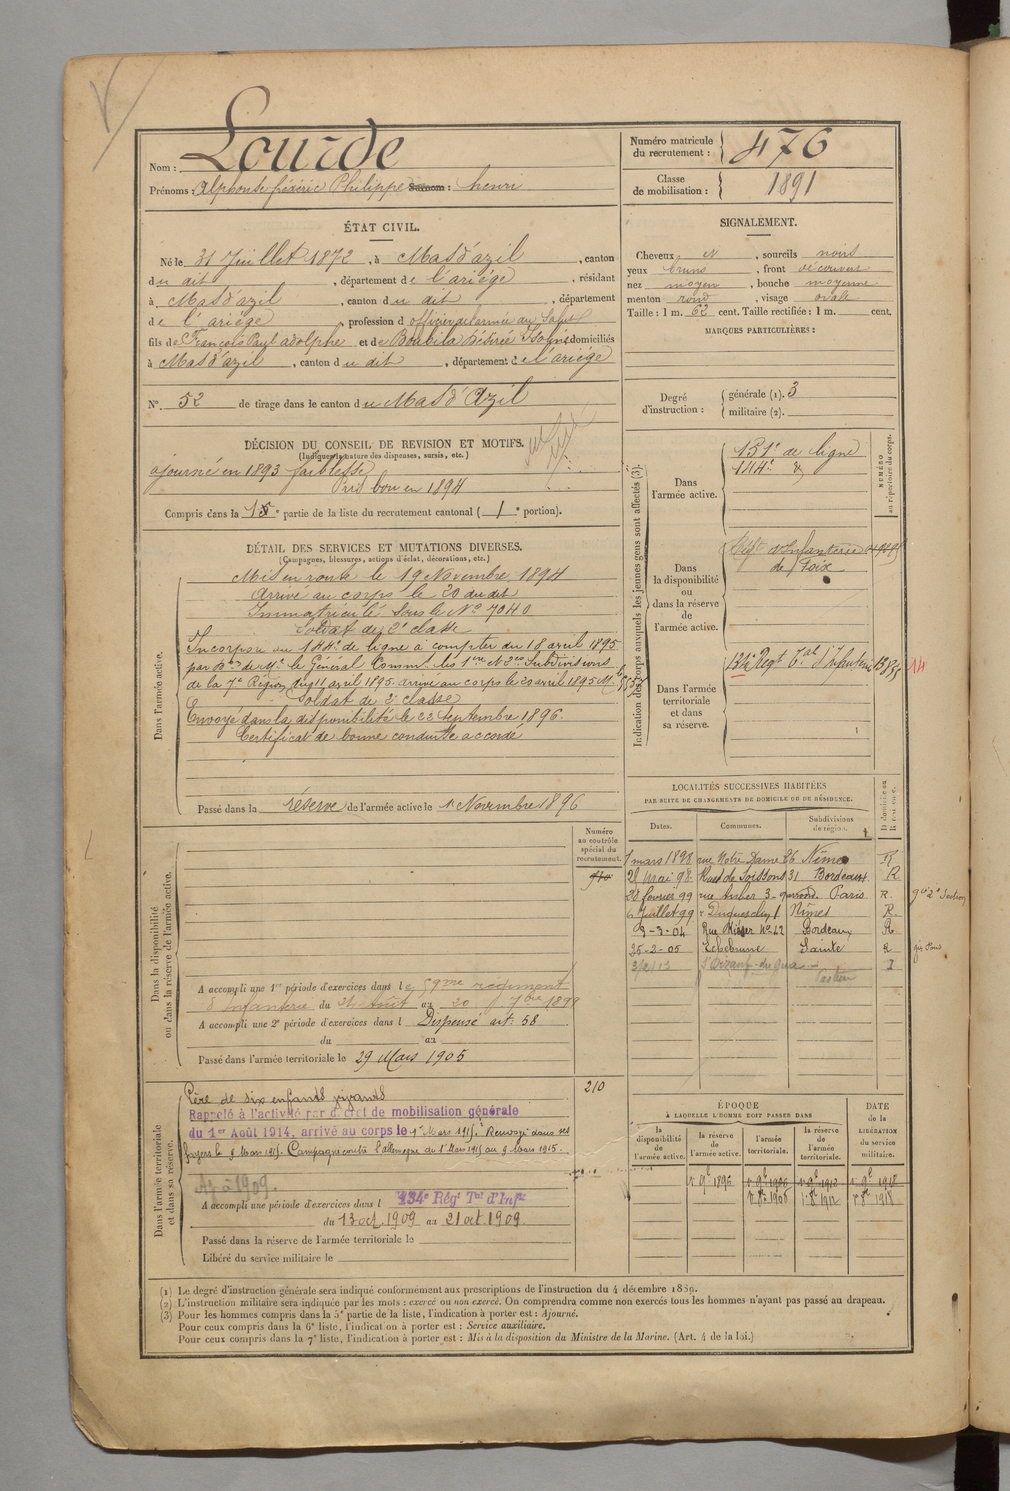 Nom : Lourde
Prénoms : Alphonse frédéric Philippe Surnom : henri
Numéro matricule
du recrutement : 476
Classe
de mobilisation : 1891
ÉTAT CIVIL.
Né le 31 Juillet 1872, à Mas d'azil, canton
du dit, département de l'ariége, résidant
à Mas d'azil, canton du dit, département
de l'ariége, profession d officier de l'armée du Salut
fils de François Paul adolphe et de Boubila Désirée domiciliés
à Mas d'azil, canton du dit, département de l'ariége
N° 52 de tirage dans le canton du Mas d'Azil
SIGNALEMENT.
Cheveux et, sourcils noirs
yeux bruns, front découvert
nez moyen, bouche moyenne
menton rond, visage ovale
Taille : 1 m. 62 cent. Taille rectifiée : 1 m. cent.
MARQUES PARTICULIÈRES :
Degré
d'instruction :
générale (1). 3
militaire (2).
DÉCISION DU CONSEIL DE REVISION ET MOTIFS.
(Indiquer la nature des dispenses, sursis, etc.)
ajourné en 1893 faiblesse
Pris bon en 1894
Compris dans la 1e partie de la liste du recrutement cantonal (1e portion).
DÉTAIL DES SERVICES ET MUTATIONS DIVERSES.
(Campagnes, blessures, actions d'éclat, décorations, etc.)
Dans l'armée active.
Mis en route le 19 Novembre 1894
Arrivé au corps le 20 du dit
Immatriculé sous le N° 7040
Soldat de 2e classe
Incorporé au 144e de ligne à compter du 18 avril 1895
par de Mr. le Général Commt les 1re et 2es Subdivisions
de la 7e Région du 11 avril 1895. arrivé au corps le 20 avril 1895
Soldat de 2e classe
Envoyé dans la disponibilité le 22 Septembre 1896.
Certificat de bonne conduite accordé
Passé dans la réserve de l'armée active le 1 Novembre 1896
Indication des corps auxquels les jeunes gens sont affectés (3).
NUMÉRO
au répertoire du corps.
Dans
l'armée active.
151e de ligne
144e
Dans
la disponibilité
ou
dans la réserve
de
l'armée active.
Regt d'Infanterie
de Foix
Dans l'armée
territoriale
et dans
sa réserve.
134e Regt Tal d'Infanterie
14
LOCALITÉS SUCCESSIVES HABITÉES
PAR SUITE DE CHANGEMENTS DE DOMICILE OU DE RÉSIDENCE.
Dates. Communes. Subdivisions de région.
D domicile ou R résidence.
1 mars 1898 rue Notre Dame 26 Nîmes R
28 mai 98 Rue de Soissons 31 Bordeaux R
28 février 99 rue Auber 3 Paris R.
6 Juillet 99 r. Duguesclin 1 Nîmes R.
3-04 Bordeaux R
25-2-05 Sainte R
Dans la disponibilité
ou dans la réserve de l'armée active.
Numéro
au contrôle
spécial du
recrutement
A accompli une 1re période d'exercices dans le 59me regiment
d'Infanterie du 24 Août au 20 7bre 1899
A accompli une 2e période d'exercices dans l Dispensé art. 58
du au
Passé dans l'armée territoriale le 29 Mars 1905
Dans l'armée territoriale
et dans sa réserve.
210
Père de six enfants vivants
Rappelé à l'activité par décret de mobilisation générale
du 1er Août 1914, arrivé au corps le 1 Mars 1915. Renvoyé dans ses
foyers le 9 Mars 1915. Campagne contre l'allemagne du 1 Mars 1915 au 9 Mars 1915.
Aj à 1909.
A accompli une période d'exercices dans l 134e Régt Tal d'Infie
du 13 oct 1909 au 21 oct 1909
Passé dans la réserve de l'armée territoriale le
Libéré du service militaire le
ÉPOQUE
A LAQUELLE L'HOMME DOIT PASSER DANS
la disponibilité de l'armée active.
la réserve de l'armée active.
l'armée territoriale.
la réserve de l'armée territoriale.
DATE
de la
LIBÉRATION
du service
militaire.
(1) Le degré d'instruction générale sera indiqué conformément aux prescriptions de l'instruction du 4 décembre 1889.
(2) L'instruction militaire sera indiquée par les mots : exercé ou non exercé. On comprendra comme non exercés tous les hommes n'ayant pas passé au drapeau.
(3) Pour les hommes compris dans la 5e partie de la liste, l'indication à porter est : Ajourné.
Pour ceux compris dans la 6e liste, l'indication à porter est : Service auxiliaire.
Pour ceux compris dans la 7e liste, l'indication à porter est : Mis à la disposition du Ministre de la Marine. (Art. 4 de la loi.)